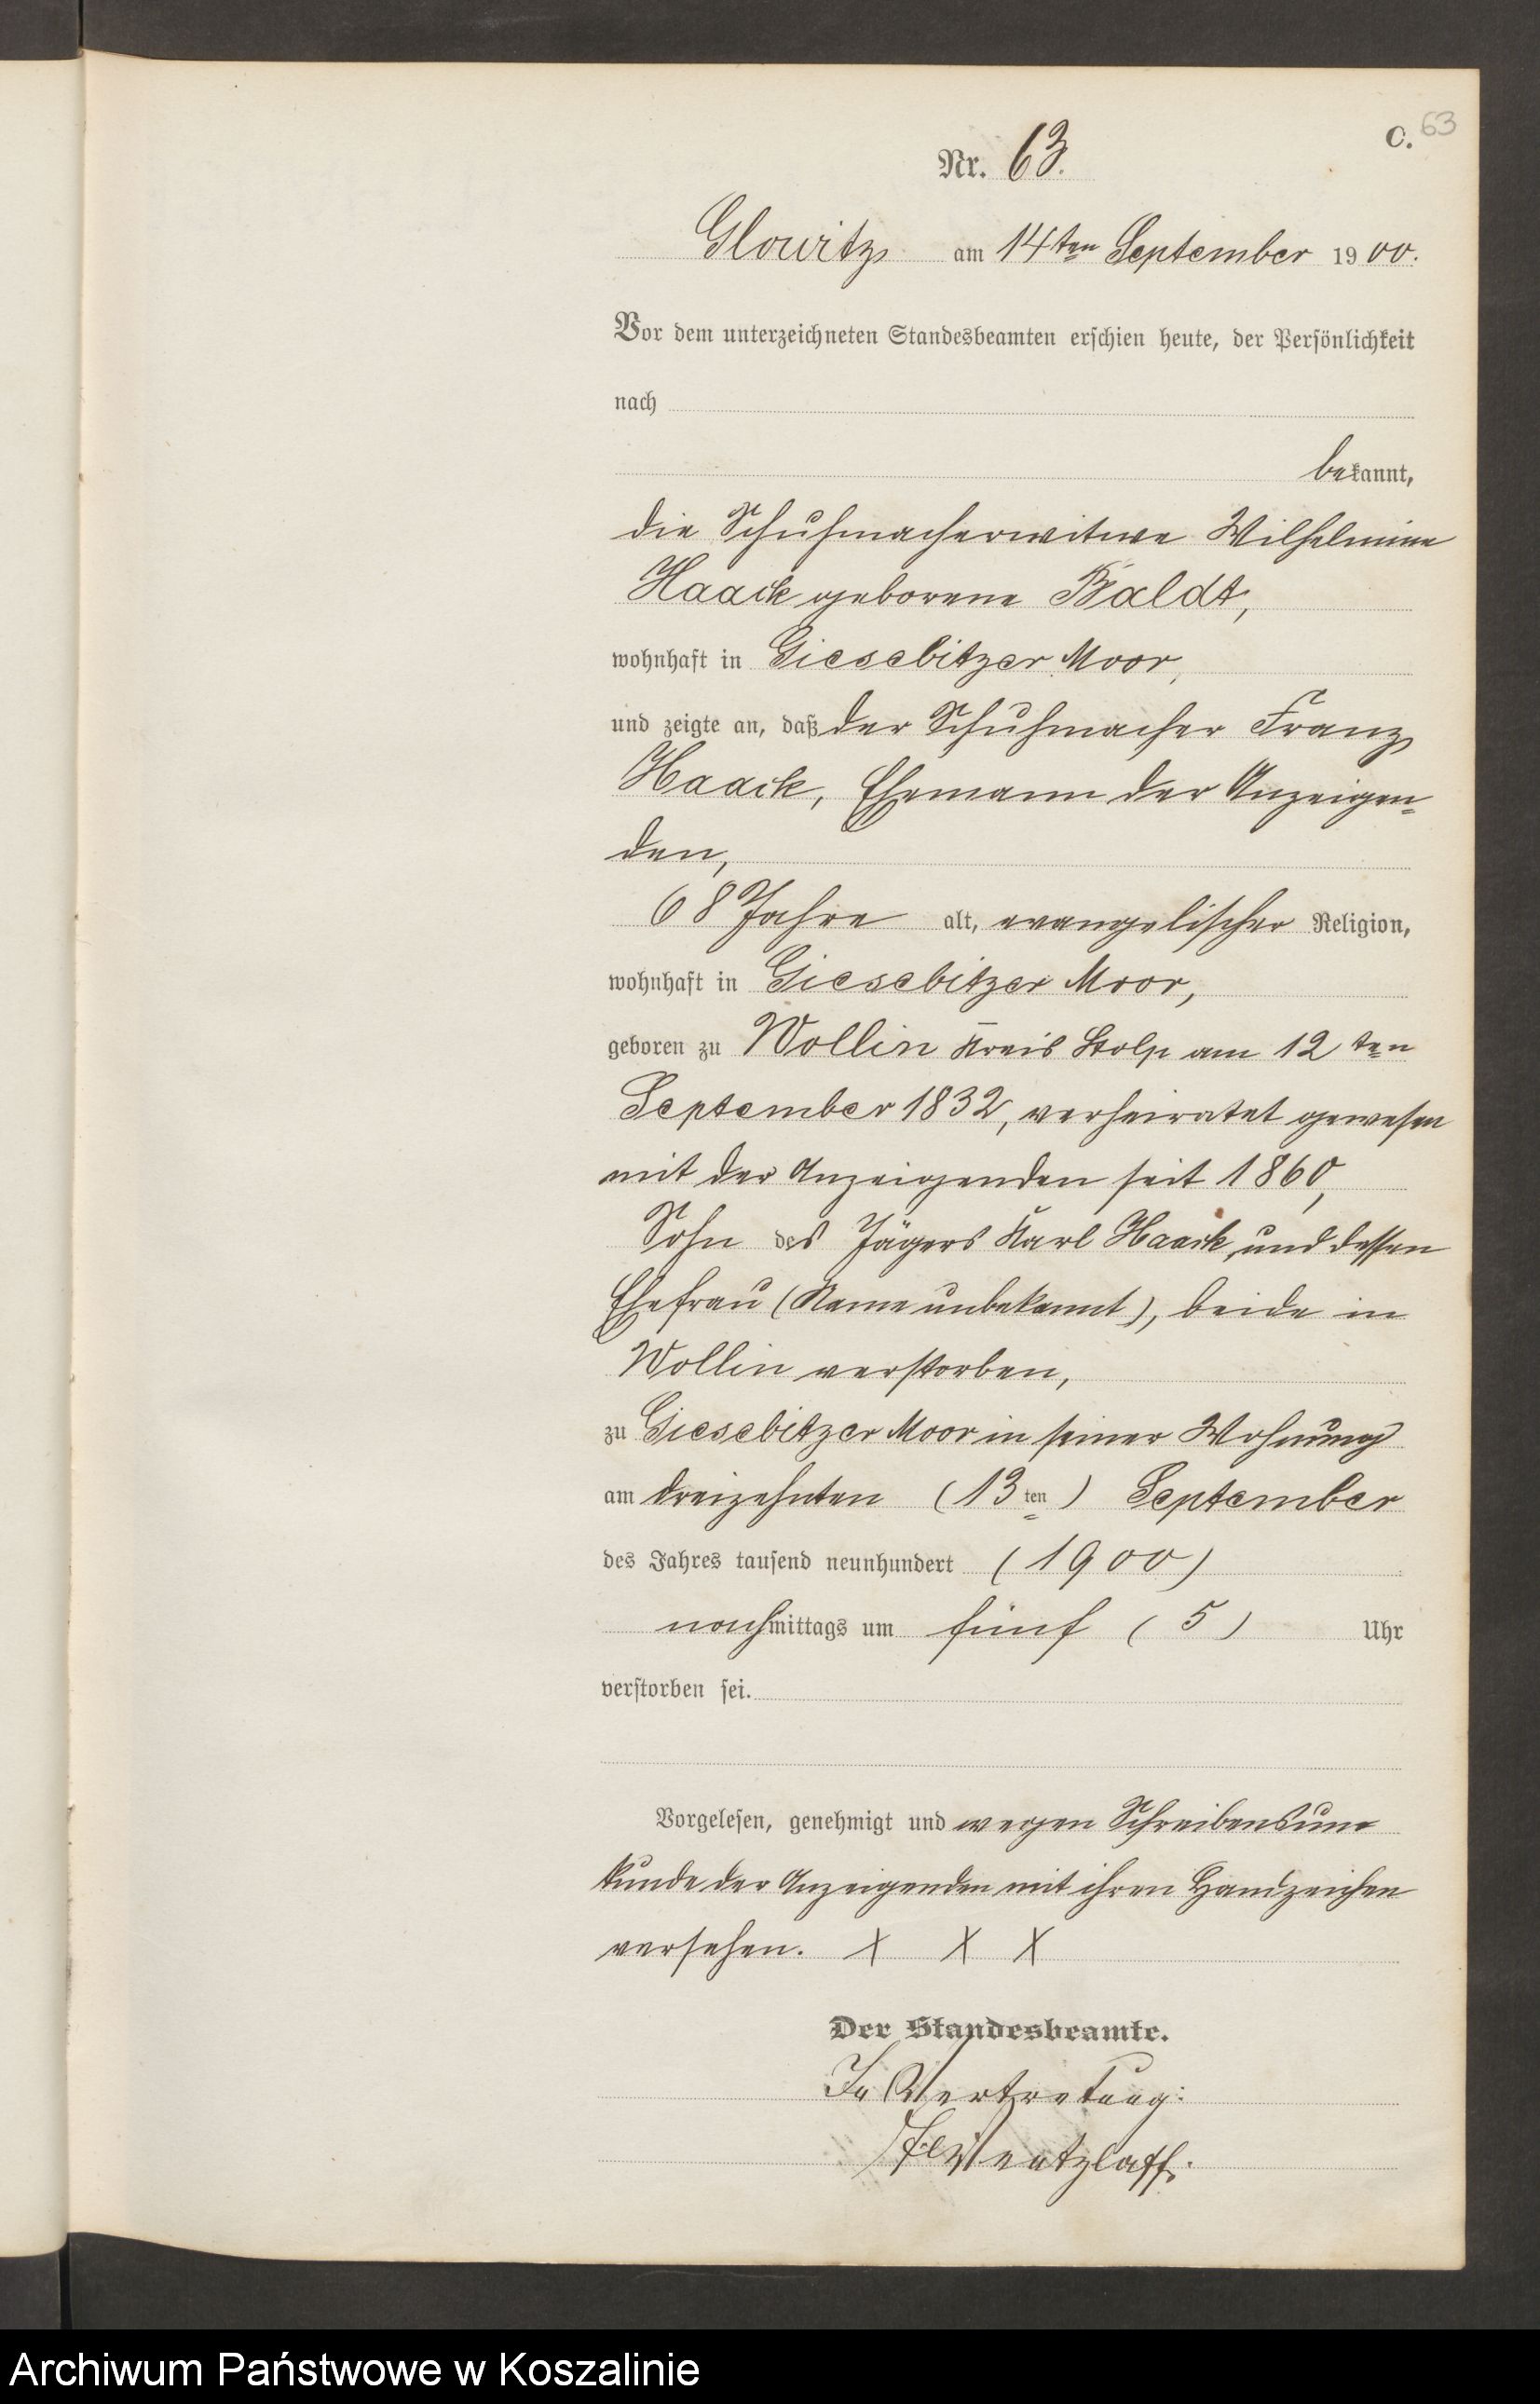 C. 63
Nr. 63.
Glowitz am 14ten September 1900.
Vor dem unterzeichneten Standesbeamten erschien heute, der Persönlichkeit
nach
bekannt,
die Schuhmacherwitwe Wilhelmine
Haack geborene Baldt,
wohnhaft in Giesebitzer Moor,
und zeigte an, daß der Schuhmacher Franz
Haack, Ehemann der Anzeigen-
den,
68 Jahre alt, evangelischer Religion,
wohnhaft in Giesebitzer Moor,
geboren zu Wollin Kreis Stolp am 12ten
September 1832, verheiratet gewesen
mit der Anzeigenden seit 1860,
Sohn des Jägers Karl Haack, und dessen
Ehefrau (Name unbekannt), beide in
Wollin verstorben,
zu Giesebitzer Moor in seiner Wohnung
am dreizehnten (13ten) September
des Jahres tausend neunhundert (1900)
nachmittags um fünf (5) Uhr
verstorben sei.
Vorgelesen, genehmigt und wegen Schreibensun-
kunde der Anzeigenden mit ihren Handzeichen
versehen. X X X
Der Standesbeamte.
In Vertretung:
Wentzlaff.
Archiwum Państwowe w Koszalinie